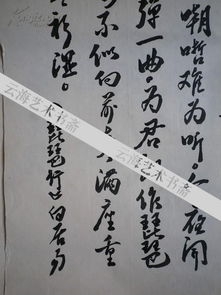 嘲哳难为听。今夜闻
弹一曲。为君作琵琶
不似向前满座重
衫湿。《琵琶行》白居易
云海艺术书斋
云海艺术书斋